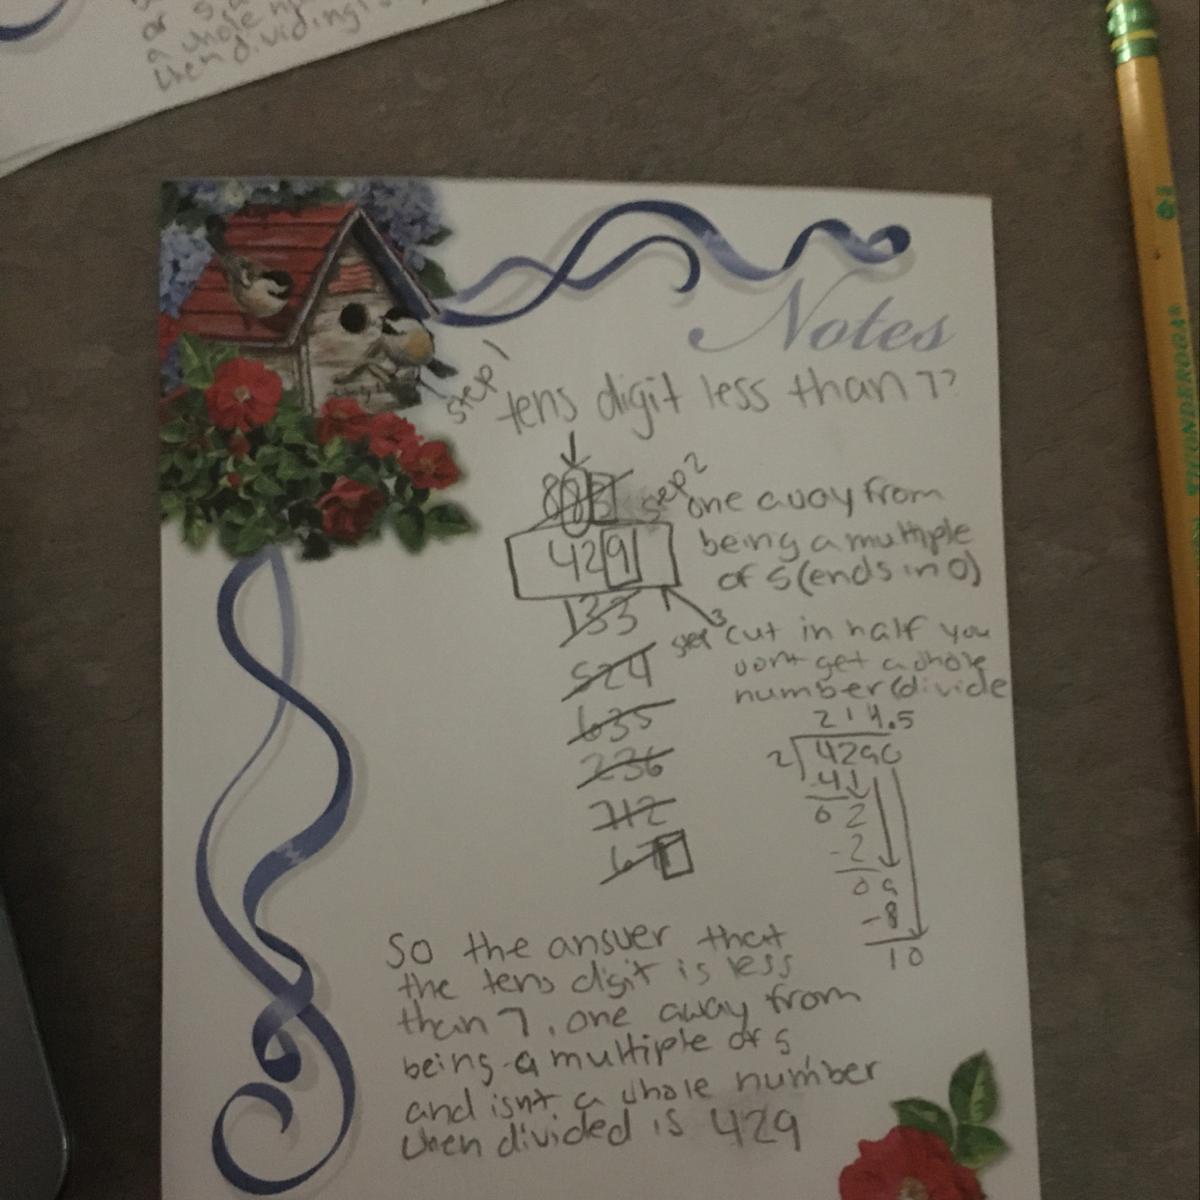 a whole n
then dividing
Notes
step 1
tens digit less than 7?
step 2
one away from
being a multiple
of 5 (ends in 0)
429
133
step 3
cut in half you
wont get a whole
number (divide
524
635
236
712
214.5
2)4290
-4
02
-2
09
-8
10
So the answer that
the tens digit is less
than 7, one away from
being a multiple of 5
and isnt a whole number
when divided is 429
TICONDEROGA